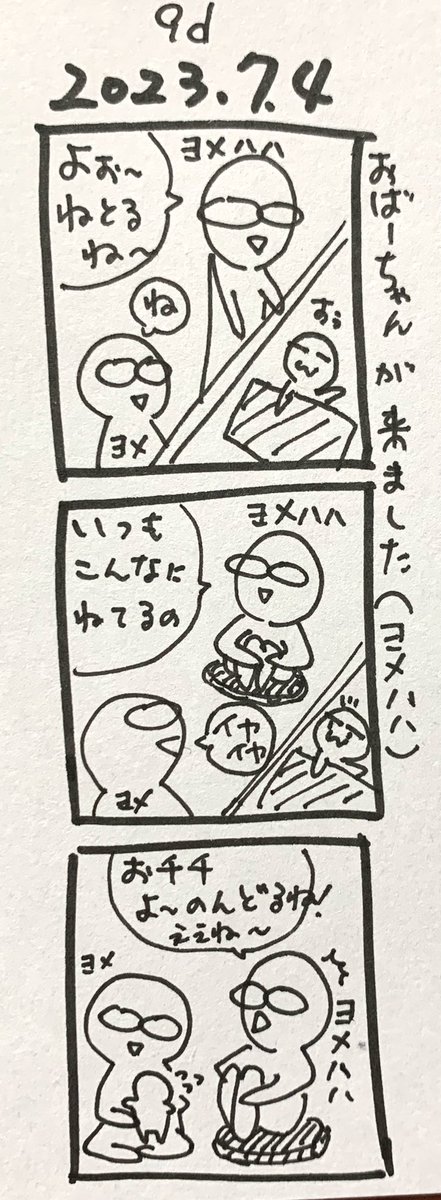 9d
2023.7.4
おばーちゃんが来ました(ヨメハハ)
ヨメハハ
よぉ〜
ねとる
ね〜
ね
ヨメ
すぅ
ヨメハハ
いつも
こんなに
ねてるの
イヤ
イヤ
ヨメ
おチチ
よ〜のんどるね!
ええね〜
ヨメ
ヨメハハ